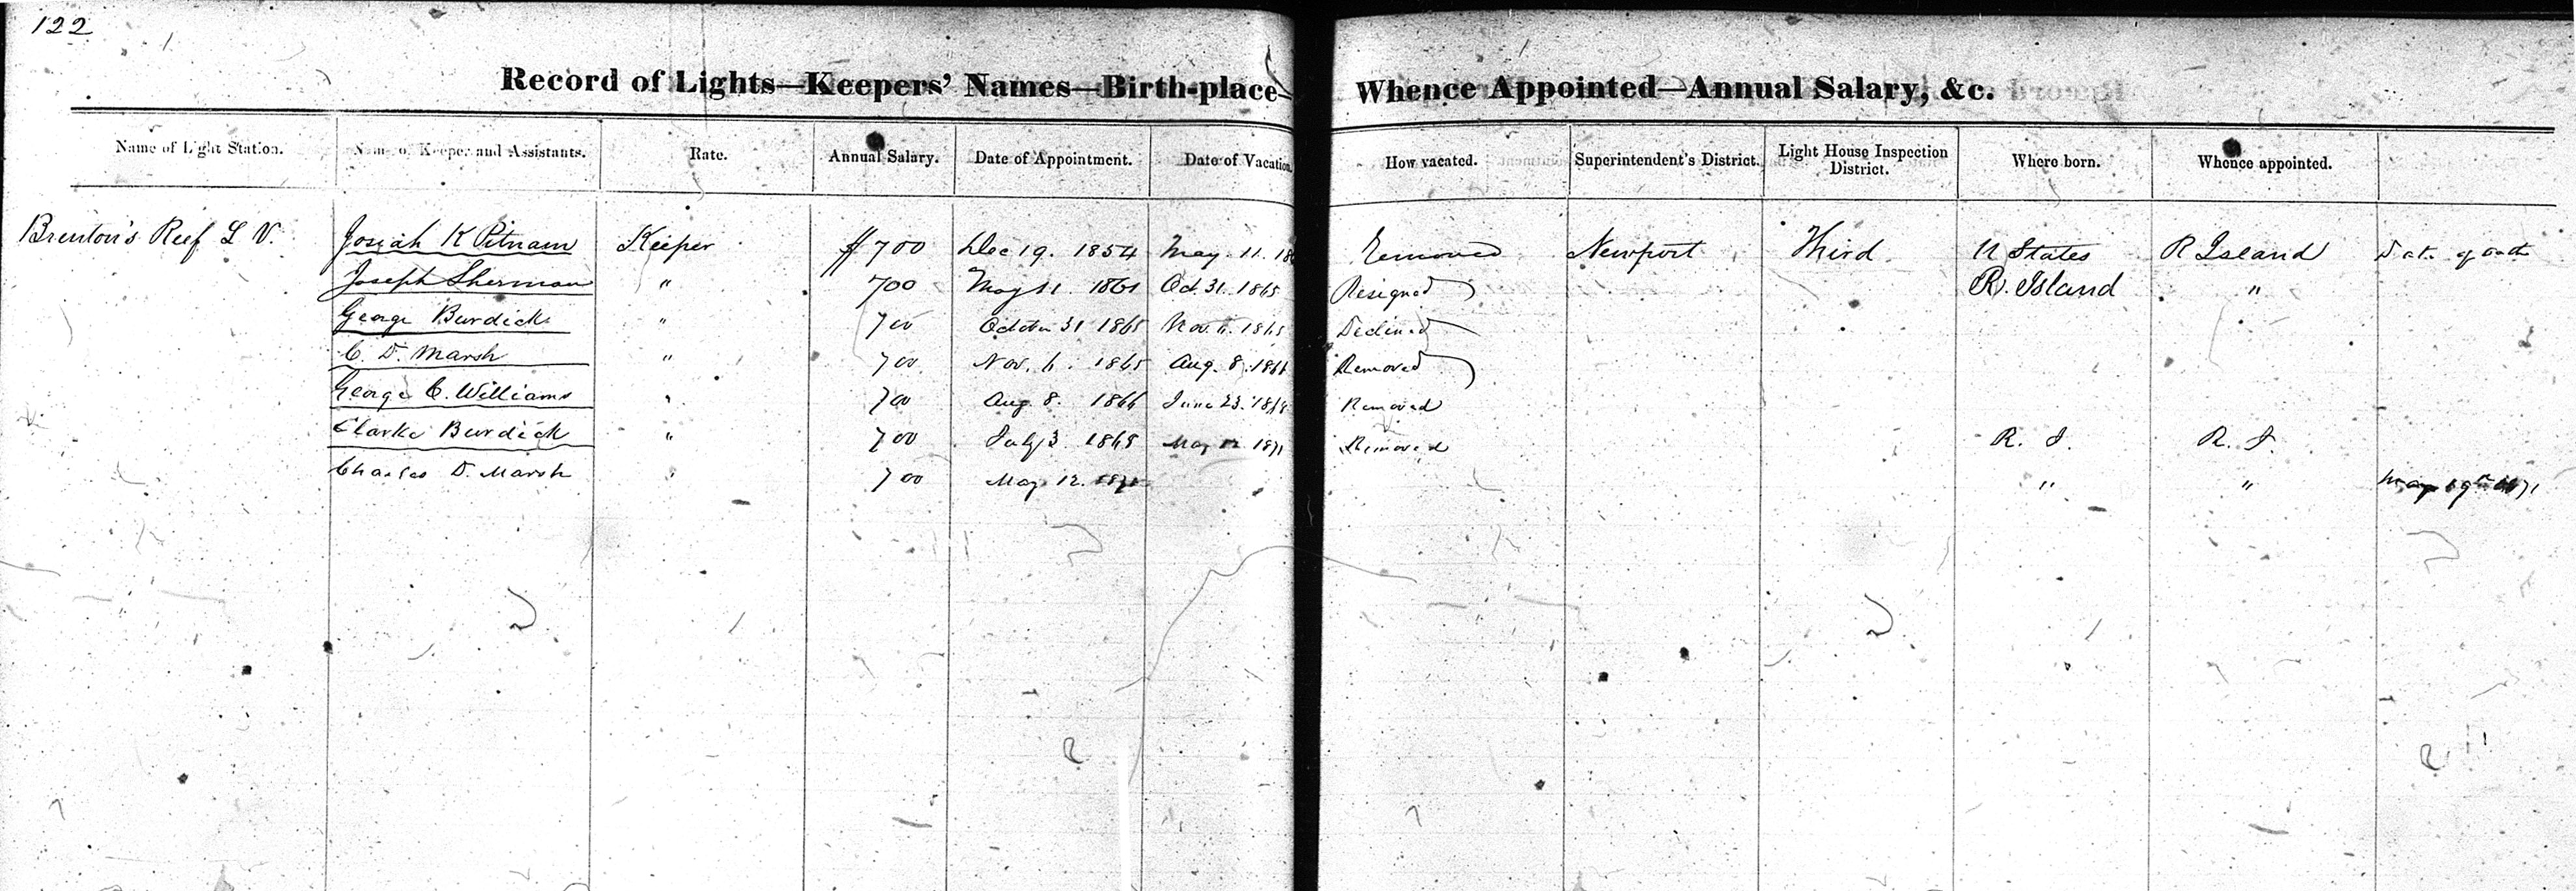 122
Record of Lights—Keepers' Names—Birth-place— Whence Appointed—Annual Salary, &c.
Name of Light Station. Name of Keeper and Assistants. Rate. Annual Salary. Date of Appointment. Date of Vacation. How vacated. Superintendent's District. Light House Inspection District. Where born. Whence appointed.
Brenton's Reef L V. Josiah K Pitnam Keeper $700 Dec 19. 1854 May 11. 18 Removed Newport Third. U States R Island Date of oath
Joseph Sherman " 700 May 11. 1861 Oct 31. 1865 Resigned R. Island "
George Burdick " 700 October 31 1865 Nov. 6. 1865 Declined
C. D. Marsh " 700 Nov. 6. 1865 Aug. 8. 1866 Removed
George C. Williams " 700 Aug 8. 1866 June 23. 1868 Removed
Clarke Burdick " 700 July 3 1868 May 12 1871 Removed R. I. R. I.
Charles D. Marsh " 700 May 12. 1871 " " May 19th 1871